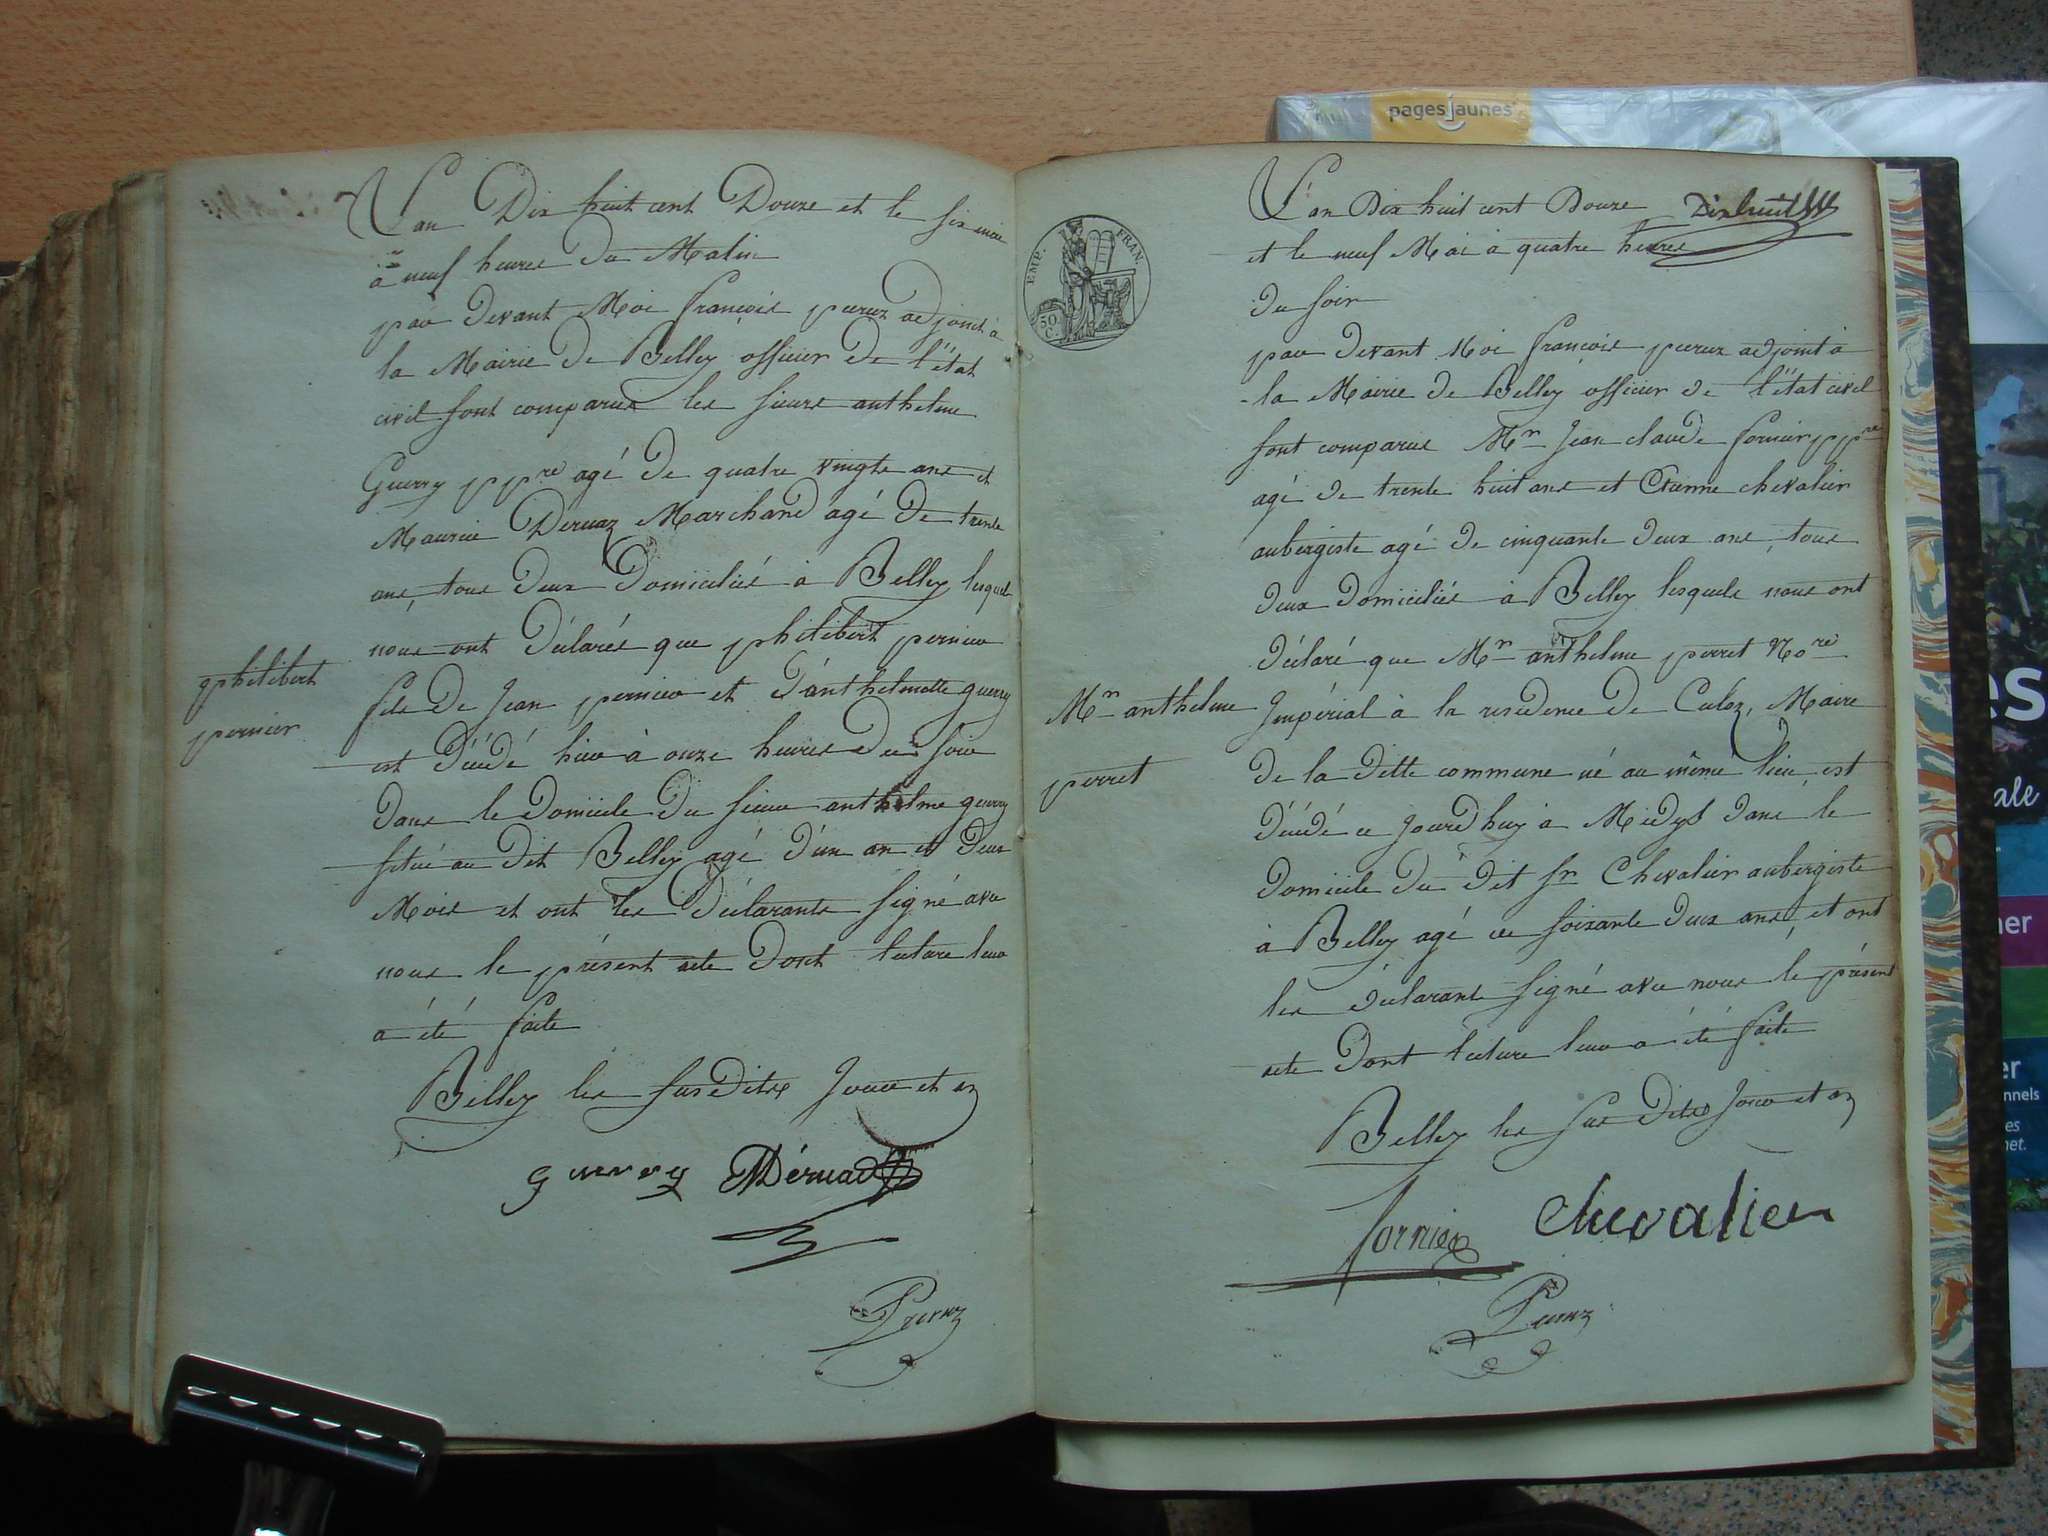 L'an Dix huit cent Douze et le six mai
à neuf heures du Matin
par devant Moi françois peruz adjoint à
la Mairie de Belley officier de l'état
civil sont comparus les sieurs anthelme
Guerry pp.re agé de quatre vingts ans et
Maurice Dervaz Marchand agé de trente
ans, tous deux domiciliés à Belley lesquels
nous ont déclarés que philibert pernier
fils de Jean pernier et d'anthelmette guerry
est décédé hier à onze heures du soir
dans le domicile du sieur anthelme guerry
situé au dit Belley agé d'un an et deux
Mois et ont les déclarants signé avec
nous le présent acte dont lecture leur
a été faite
Belley les susdits jour et an
philibert
pernier
guerry MDérvaz
Peruz
EMP. FRAN.
50 C.
L'an Dix huit cent Douze Dixhuit
et le neuf Mai à quatre heures
du soir
par devant Moi françois peruz adjoint à
la Mairie de Belley officier de l'état civil
sont comparus Mr Jean claude fornier pp.re
agé de trente huit ans et Etienne chevalier
aubergiste agé de cinquante deux ans, tous
deux domiciliés à Belley lesquels nous ont
déclaré que Mr anthelme perret Nore
Impérial à la residence de Culoz, Maire
de la ditte commune né au même lieu, est
décédé ce jourd'huy à Midy dans le
domicile du dit sr Chevalier aubergiste
à Belley agé de soixante deux ans, et ont
les déclarants signé avec nous le présent
acte dont lecture leur a été faite
Belley les sus dits jour et an
Mr anthelme
perret
fornier chevalier
Peruz
pagesjaunes
es
ale
ner
er
nnels
es
net.